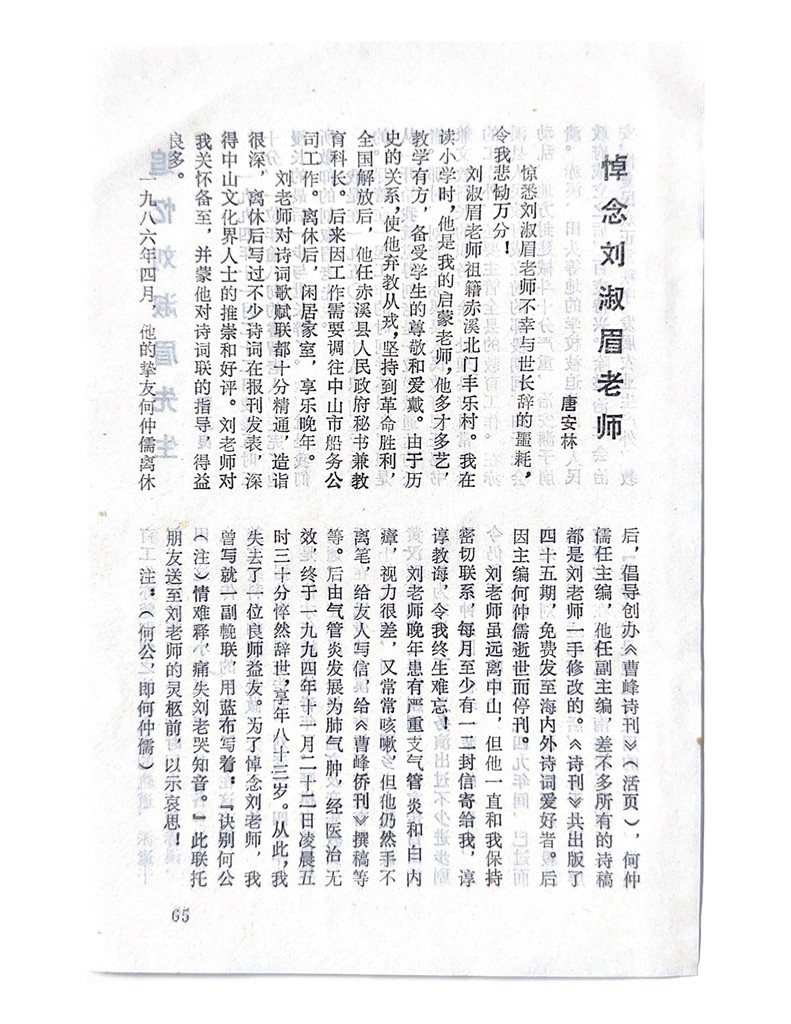 悼念刘淑眉老师
唐安林
惊悉刘淑眉老师不幸与世长辞的噩耗，
令我悲恸万分！
刘淑眉老师祖籍赤溪北门丰乐村。我在
读小学时，他是我的启蒙老师，他多才多艺，
教学有方，备受学生的尊敬和爱戴。由于历
史的关系，使他弃教从戎，坚持到革命胜利，
全国解放后，他任赤溪县人民政府秘书兼教
育科长。后来因工作需要调往中山市船务公
司工作。离休后，闲居家室，享乐晚年。
刘老师对诗词歌赋联都十分精通，造诣
很深，离休后写过不少诗词在报刊发表，深
得中山文化界人士的推崇和好评。刘老师对
我关怀备至，并蒙他对诗词联的指导，得益
良多。
一九八六年四月，他的挚友何仲儒离休
后，倡导创办《曹峰诗刊》（活页），何仲
儒任主编，他任副主编，差不多所有的诗稿
都是刘老师一手修改的。《诗刊》共出版了
四十五期，免费发至海内外诗词爱好者。后
因主编何仲儒逝世而停刊。
刘老师虽远离中山，但他一直和我保持
密切联系，每月至少有一二封信寄给我，谆
谆教诲，令我终生难忘！
刘老师晚年患有严重支气管炎和白内
障，视力很差，又常常咳嗽，但他仍然手不
离笔，给友人写信，给《曹峰侨刊》撰稿等
等。后由气管炎发展为肺气肿，经医治无
效，终于一九九四年十一月二十二日凌晨五
时三十分悴然辞世，享年八十三岁。从此，我
失去了一位良师益友。为了悼念刘老师，我
曾写就一副輓联，用蓝布写着：“诀别何公
（注）情难释，痛失刘老哭知音。”此联托
朋友送至刘老师的灵柩前，以示哀思！
注：（何公，即何仲儒）
65